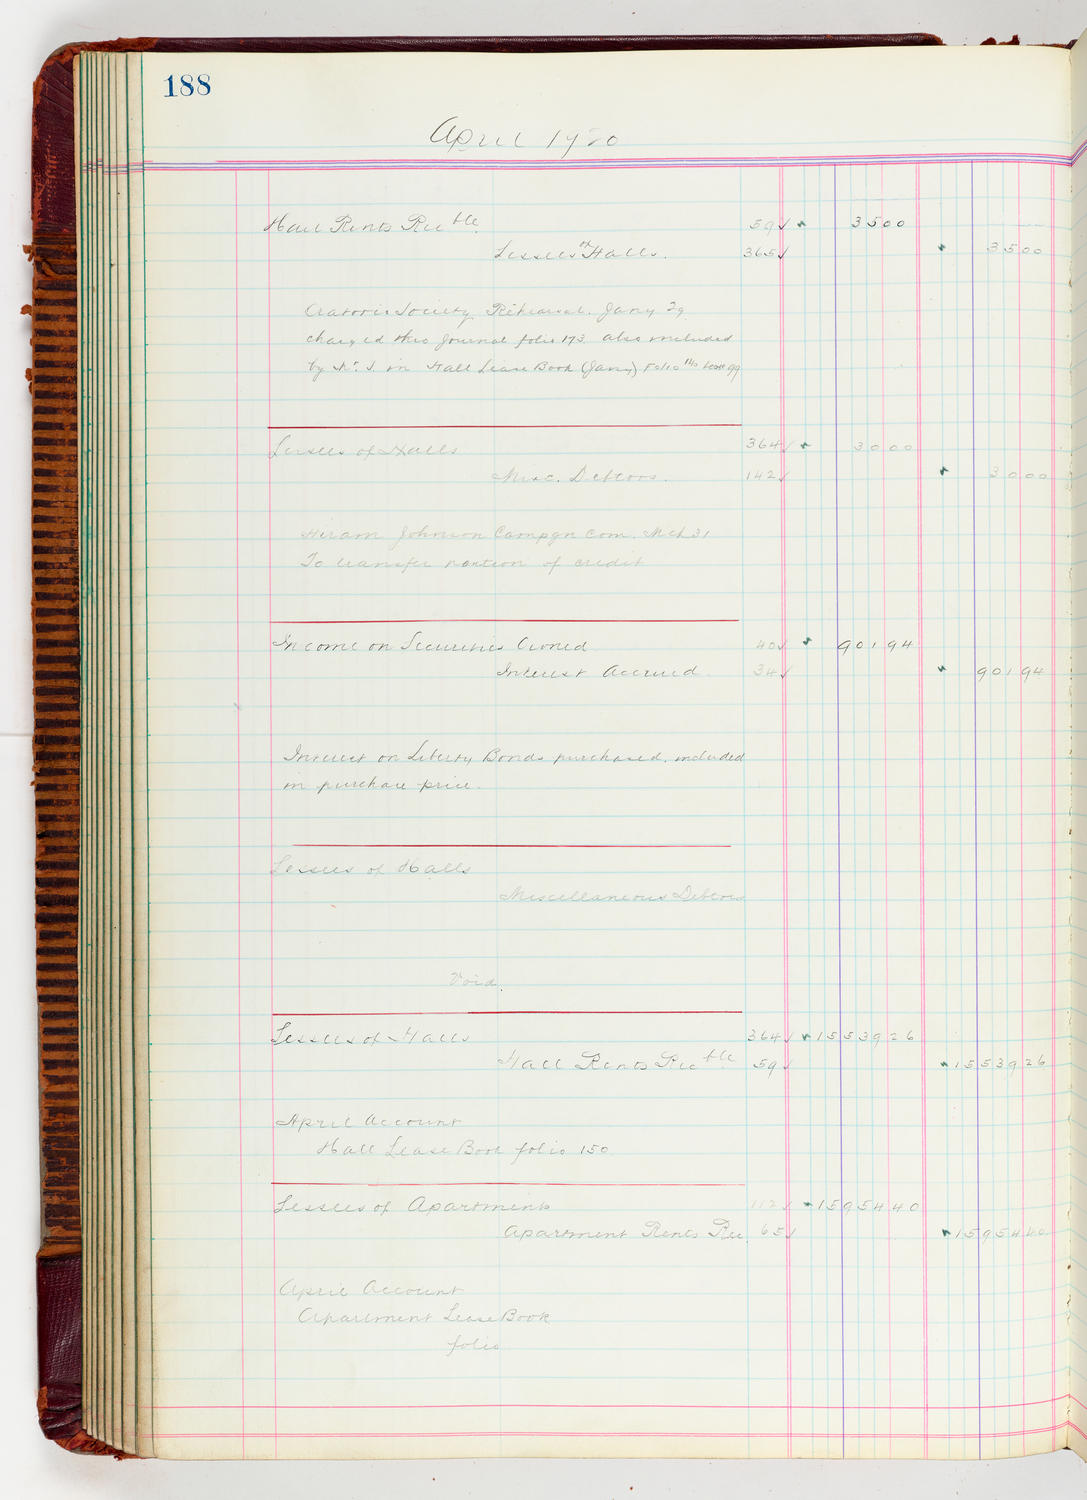 188
April 1920
Hall Rents Rec ble 59 ✓ 35 00
Lessees of Halls. 365 ✓ 35 00
Oratorio Society Rehearsal. Jany 29
charged thro Journal folio 173. also included
by Mr. J. in Hall Lease Book (Jany) Folio 140 Lease 99
Lessees of Halls 364 ✓ 30 00
Misc. Debtors. 142 ✓ 30 00
Hiram Johnson Campgn Com. Mch 31
To transfer portion of credit
Income on Securities Owned 40 ✓ 901 94
Interest Accrued 34 ✓ 901 94
Interest on Liberty Bonds purchased, included
in purchase price.
Lessees of Halls
Miscellaneous Debtors
Void.
Lessees of Halls 364 ✓ 15539 26
Hall Rents Rec ble 59 ✓ 15539 26
April Account
Hall Lease Book folio 150
Lessees of Apartments 112 ✓ 15954 40
Apartment Rents Rec 65 ✓ 15954 40
April Account
Apartment Lease Book
folio